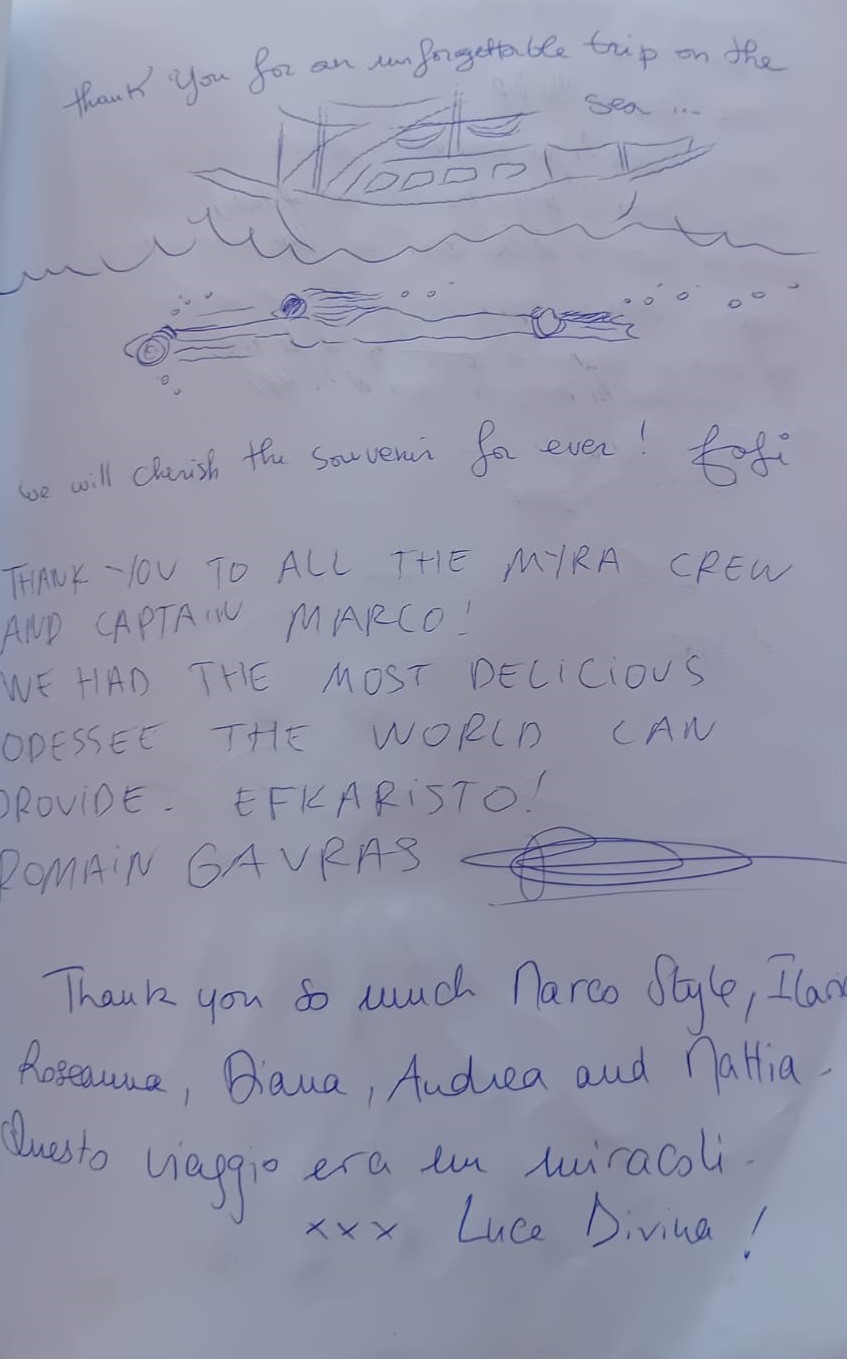 thank you for an unforgettable trip on the
sea ...
we will cherish the souvenir for ever !
THANK YOU TO ALL THE MYRA CREW
AND CAPTAIN MARCO!
WE HAD THE MOST DELICIOUS
ODESSEE THE WORLD CAN
PROVIDE. EFKARISTO!
ROMAIN GAVRAS
Thank you so much Marco Style,
Roseanna, Diana, Andrea and Mattia.
Questo viaggio era un miracoli.
xxx Luce Divina !